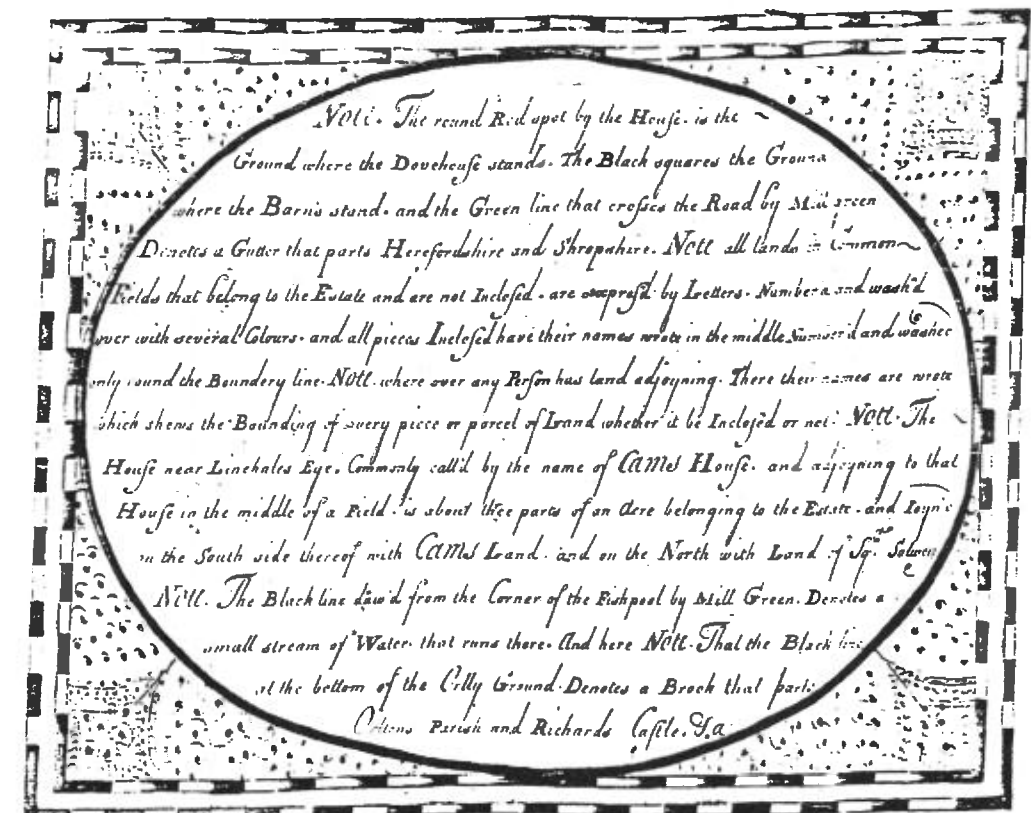 Note. The round Red spot by the House. is the
Ground where the Dovehouse stands. The Black squares the Ground
where the Barns stand. and the Green line that crosses the Road by Mill green
Denotes a Gutter that parts Herefordshire and Shropshire. Note all lands in Common
Fields that belong to the Estate and are not Inclosed. are expressd by Letters. Numbers and wash'd
over with several Colours. and all pieces Inclosed have their names wrote in the middle Number'd and washed
only round the Boundery line. Note. where ever any Person has land adjoyning. There their names are wrote
which shews the Bounding of every piece or parcel of Land whether it be Inclosed or not. Note. The
House near Linehales Eye. Commonly call'd by the name of Cams House. and adjoyning to that
House in the middle of a Field. is about three parts of an Acre belonging to the Estate. and Joyn's
on the South side thereof with Cams Land. and on the North with Land of Sqr.
Note. The Black line draw'd from the Corner of the Fishpool by Mill Green. Denotes a
small stream of Water. that runs there. And here Note. That the Black line
at the bottom of the Ground. Denotes a Brook that parts
Parish and Richards Castle.